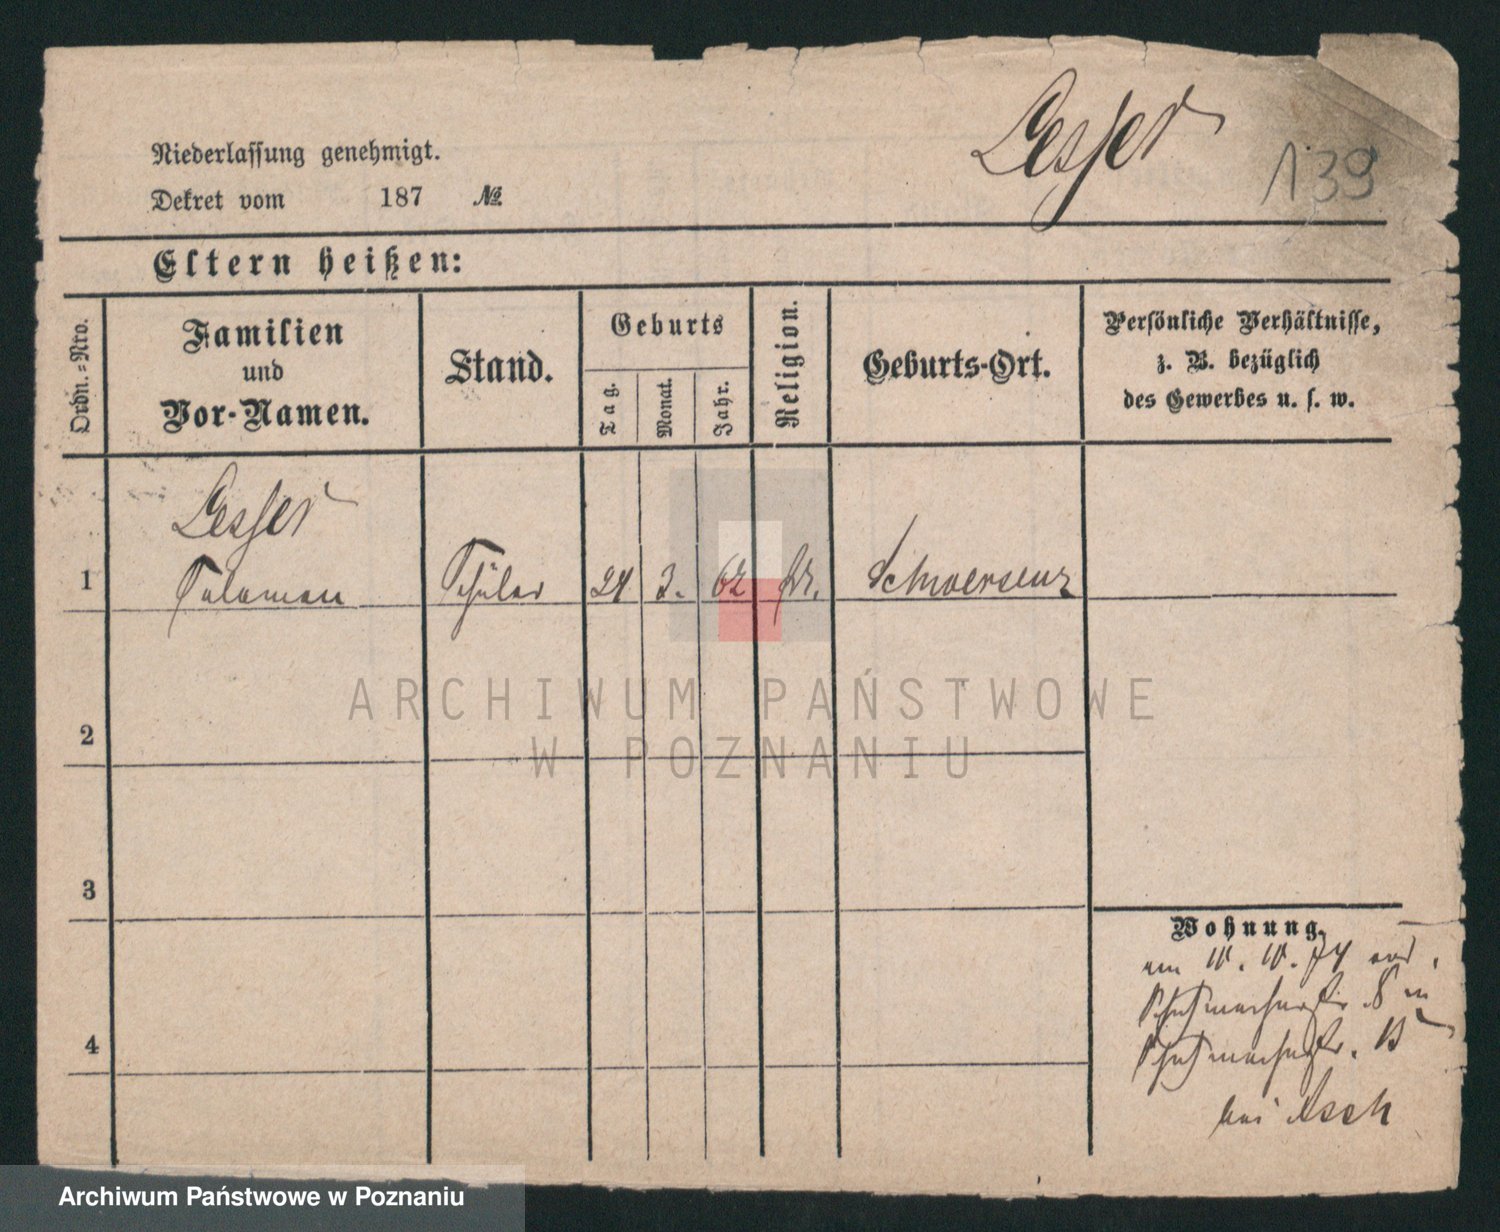 Lesser
139
Niederlassung genehmigt.
Dekret vom 187 №
Eltern heißen:
Ordn.-Nro.
Familien
und
Vor-Namen.
Stand.
Geburts
Tag.
Monat.
Jahr.
Religion.
Geburts-Ort.
Persönliche Verhältnisse,
z. B. bezüglich
des Gewerbes u. s. w.
Lesser
1 Salomon Schüler 24 3. 62 Schwersenz
2
3
4
Wohnung.
am 10. 10. 74
Schuhmacherstr. 8 in
Schuhmacherstr. 13
bei Asch
ARCHIWUM PAŃSTWOWE
W POZNANIU
Archiwum Państwowe w Poznaniu